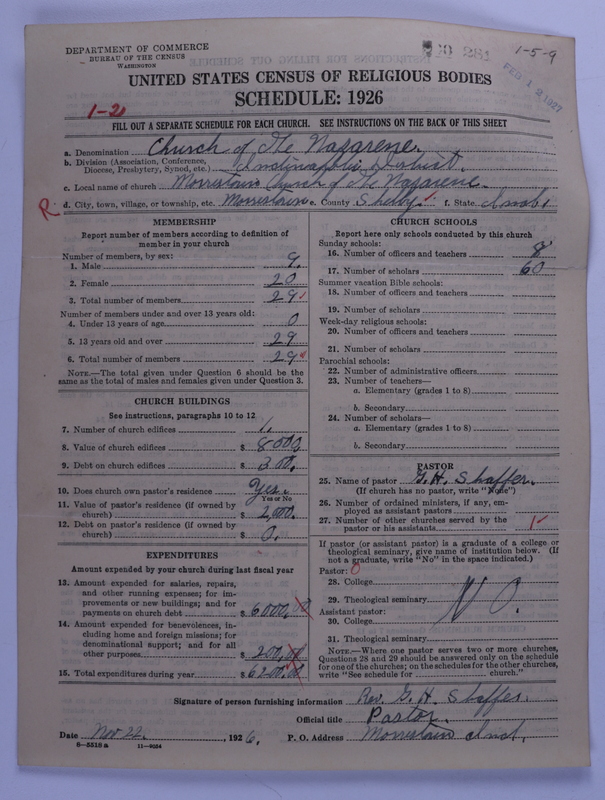 DEPARTMENT OF COMMERCE
BUREAU OF THE CENSUS
WASHINGTON
20 284
1-5-9
FEB 12 1927
UNITED STATES CENSUS OF RELIGIOUS BODIES
SCHEDULE: 1926
1-21
FILL OUT A SEPARATE SCHEDULE FOR EACH CHURCH. SEE INSTRUCTIONS ON THE BACK OF THIS SHEET
a. Denomination Church of the Nazarene.
b. Division (Association, Conference, Diocese, Presbytery, Synod, etc.) Indianapolis District.
c. Local name of church Morristown Church of the Nazarene.
R d. City, town, village, or township, etc. Morristown e. County Shelby f. State Ind.
MEMBERSHIP
Report number of members according to definition of
member in your church
Number of members, by sex:
1. Male 9.
2. Female 20
3. Total number of members 29
Number of members under and over 13 years old:
4. Under 13 years of age 0
5. 13 years old and over 29
6. Total number of members 29
NOTE.—The total given under Question 6 should be
same as the total of males and females given under Question 3.
CHURCH BUILDINGS
See instructions, paragraphs 10 to 12
7. Number of church edifices 1.
8. Value of church edifices $ 8000
9. Debt on church edifices $ 300.
10. Does church own pastor's residence Yes.
Yes or No
11. Value of pastor's residence (if owned by
church) $ 2,000.
12. Debt on pastor's residence (if owned by
church) $ 0.
EXPENDITURES
Amount expended by your church during last fiscal year
13. Amount expended for salaries, repairs,
and other running expenses; for im-
provements or new buildings; and for
payments on church debt $ 6000.00
14. Amount expended for benevolences, in-
cluding home and foreign missions; for
denominational support; and for all
other purposes $ 200.00
15. Total expenditures during year $ 6200.00
CHURCH SCHOOLS
Report here only schools conducted by this church
Sunday schools:
16. Number of officers and teachers 8
17. Number of scholars 60
Summer vacation Bible schools:
18. Number of officers and teachers
19. Number of scholars
Week-day religious schools:
20. Number of officers and teachers
21. Number of scholars
Parochial schools:
22. Number of administrative officers
23. Number of teachers—
a. Elementary (grades 1 to 8)
b. Secondary
24. Number of scholars—
a. Elementary (grades 1 to 8)
b. Secondary
PASTOR
25. Name of pastor G. H. Shaffer.
(If church has no pastor, write "None")
26. Number of ordained ministers, if any, em-
ployed as assistant pastors
27. Number of other churches served by the
pastor or his assistants 1
If pastor (or assistant pastor) is a graduate of a college or
theological seminary, give name of institution below. (If
not a graduate, write "No" in the space indicated.)
Pastor: 0
28. College
29. Theological seminary No.
Assistant pastor:
30. College
31. Theological seminary
NOTE.—Where one pastor serves two or more churches,
Questions 28 and 29 should be answered only on the schedule
for one of the churches; on the schedules for the other churches,
write "See schedule for church."
Signature of person furnishing information Rev. G. H. Shaffer.
Official title Pastor.
Date Nov 22. , 1926. P. O. Address Morristown Ind.
8-5518 a 11-9024